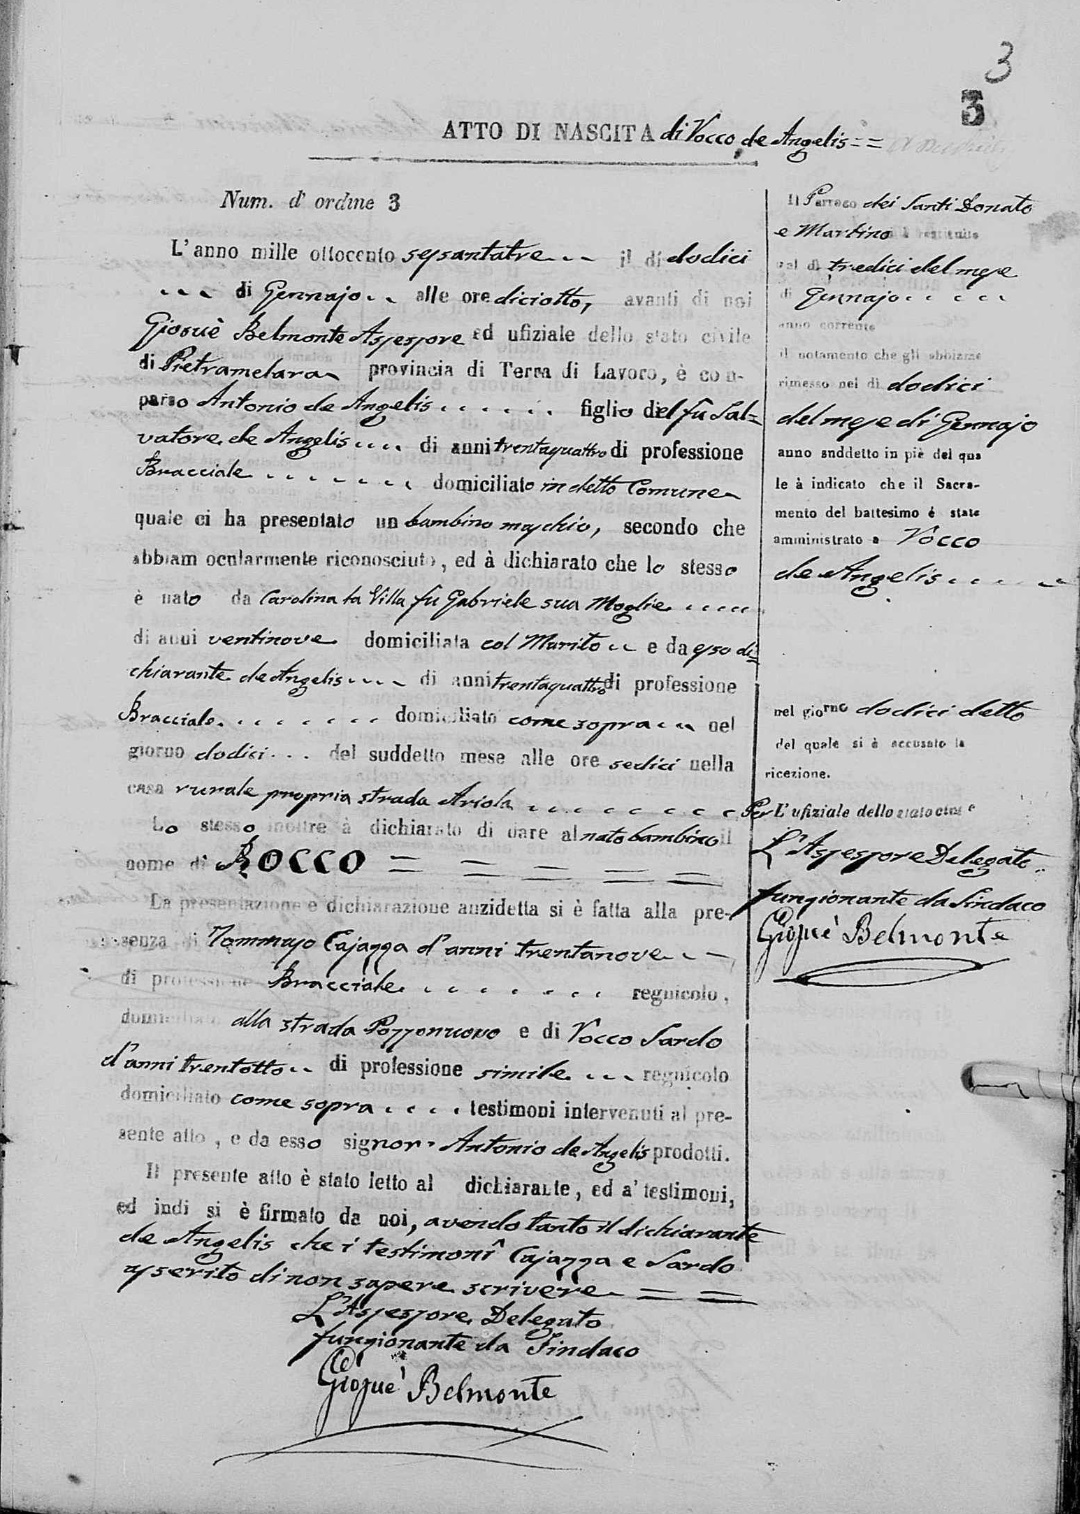 3
3
ATTO DI NASCITA di Rocco de Angelis = =
Num. d' ordine 3
L'anno mille ottocento sessantatre il di dodici
di Gennajo alle ore diciotto, avanti di noi
Giosuè Belmonte Assessore ed ufiziale dello stato civile
di Pietramelara provincia di Terra di Lavoro, è com-
parso Antonio de Angelis figlio del fu Sal=
vatore de Angelis di anni trentaquattro di professione
Bracciale domiciliato in detto Comune
quale ci ha presentato un bambino maschio, secondo che
abbiam ocularmente riconosciuto, ed à dichiarato che lo stesso
è nato da Carolina la Villa fu Gabriele sua Moglie
di anni ventinove domiciliata col Marito e da esso di=
chiarante de Angelis di anni trentaquattro di professione
Bracciale domiciliato come sopra nel
giorno dodici del suddetto mese alle ore sedici nella
casa rurale propria strada Ariola
Lo stesso inoltre à dichiarato di dare al nato bambino il
nome di ROCCO = = = = =
La presentazione e dichiarazione anzidetta si è fatta alla pre-
senza di Tommaso Cajazza d'anni trentanove
di professione Bracciale regnicolo,
domiciliato alla strada Pozzonuovo e di Rocco Sardo
d'anni trentotto di professione simile regnicolo
domiciliato come sopra testimoni intervenuti al pre-
sente atto, e da esso signor Antonio de Angelis prodotti.
Il presente atto è stato letto al dichiarante, ed a' testimoni,
ed indi si è firmato da noi, avendo tanto il dichiarante
de Angelis che i testimonî Cajazza e Sardo
asserito di non sapere scrivere = = =
L'Assessore Delegato
funzionante da Sindaco
Giosuè Belmonte
Il Parroco dei Santi Donato
e Martino à restituito
nel dì tredici del mese
di Gennajo
anno corrente
il notamento che gli abbiamo
rimesso nel dì dodici
del mese di Gennajo
anno suddetto in piè del qua
le à indicato che il Sacra-
mento del battesimo é stato
amministrato a Rocco
de Angelis
nel giorno dodici detto
del quale si è accusato la
ricezione.
Per L'ufiziale dello stato civile
L'Assessore Delegato
funzionante da Sindaco
Giosuè Belmonte